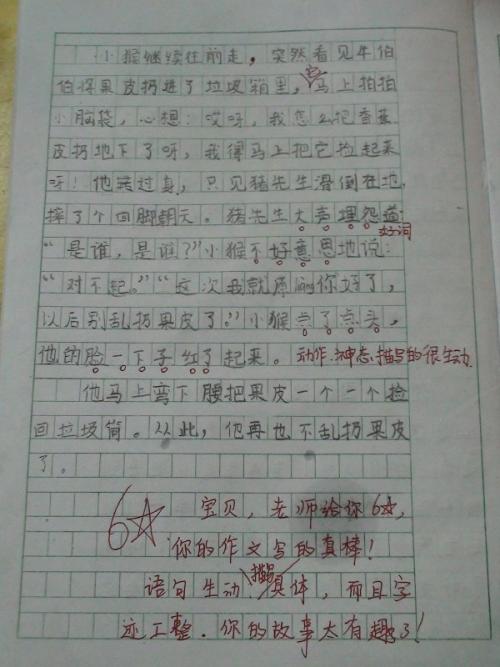 小猴继续往前走，突然看见牛伯
伯将果皮扔进了垃圾箱里，它马上拍拍
小脑袋，心想：哎呀，我怎么把香蕉
皮扔地下了呀，我得马上把它捡起来
呀！他转过身，只见猪先生滑倒在地，
摔了个四脚朝天。猪先生大声埋怨道：
好词
“是谁，是谁？”小猴不好意思地说：
“对不起。”“这次我就原谅你好了，
以后别乱扔果皮了。”小猴点了点头，
他的脸一下子红了起来。动作、神态、描写的很生动
他马上弯下腰把果皮一个一个捡
回垃圾筒。从此，他再也不乱扔果皮
了。
6☆ 宝贝，老师给你6☆，
你的作文写的真棒！
语句生动，描写具体，而且字
迹工整．你的故事太有趣了！